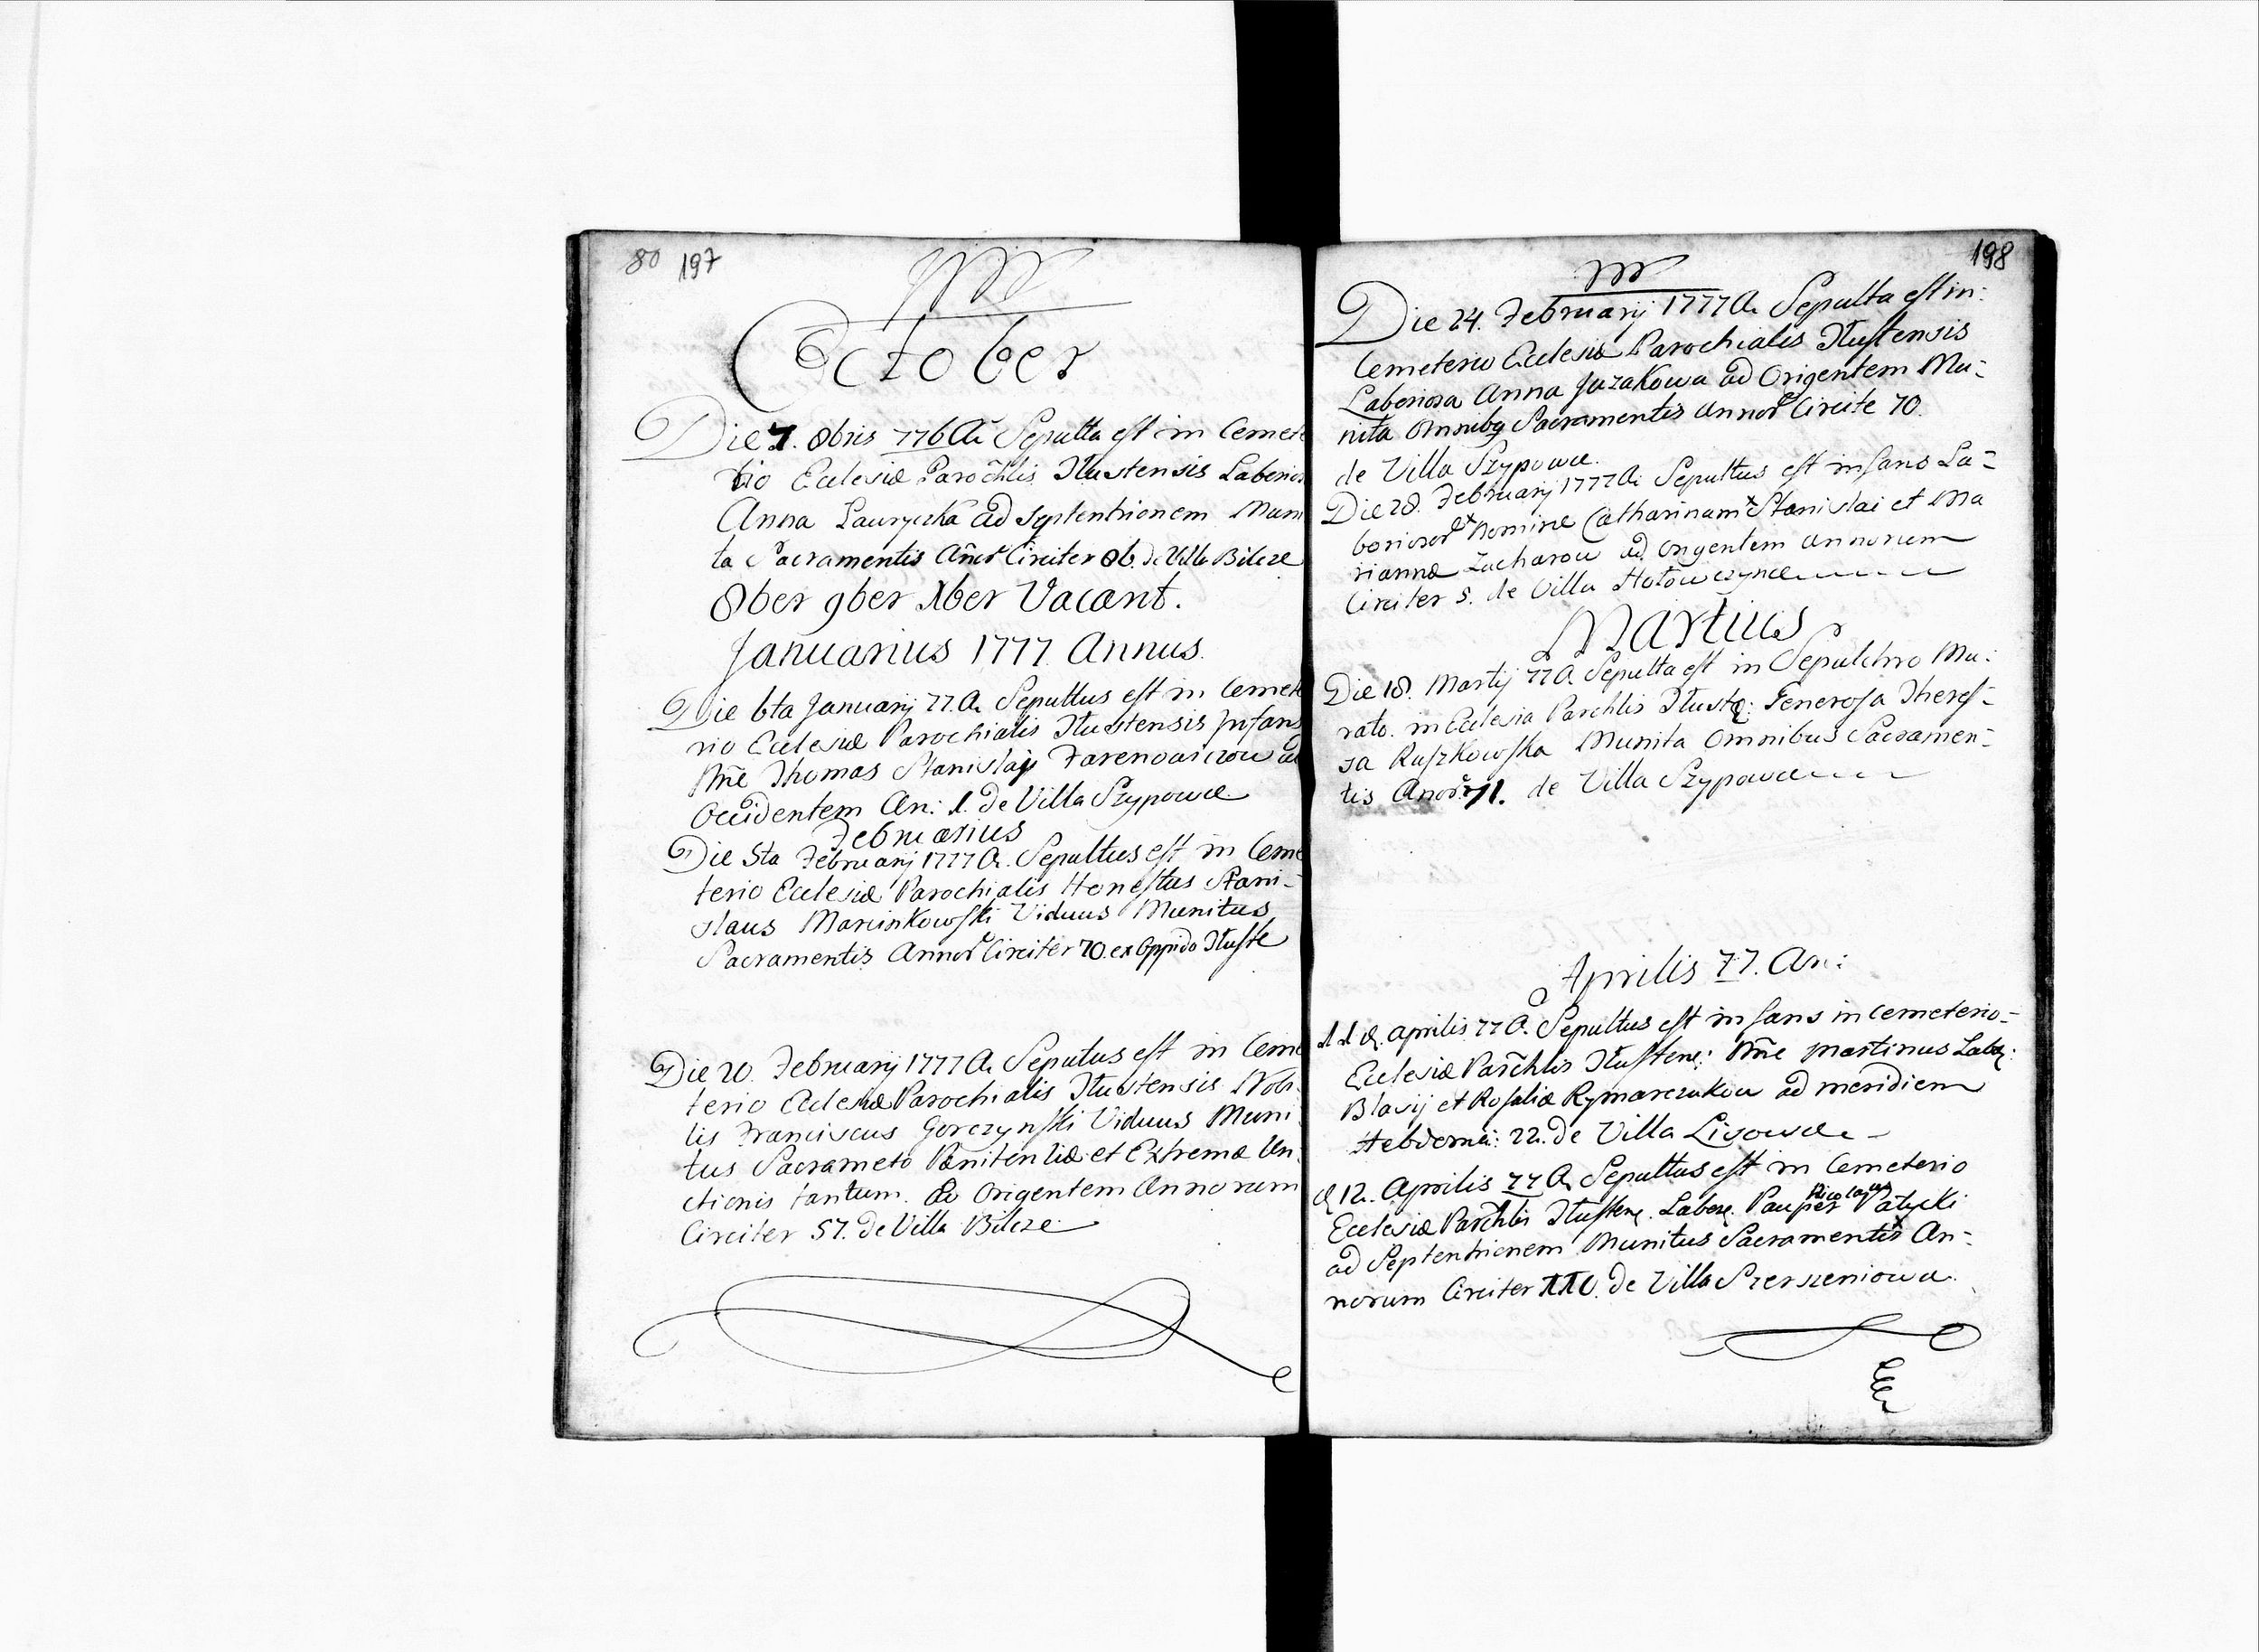 80 197
October
Die 7. 8bris 776 A Sepulta est in Cemete
rio Ecclesiæ Parochlis Tłustensis Laborios
Anna Lauryczka ad septentrionem Muni
ta Sacramentis Anor Circiter 86. de Villa Bilcze
8ber 9ber Xber Vacant.
Januarius 1777 Annus.
Die 6ta Januarij 77. A. Sepultus est in Cemete
rio Ecclesiæ Parochialis Tłustensis Infans
Nne Thomas Stanislaj ad
Occidentem An: 1. de Villa Szypowce
Februarius
Die 5ta Februarij 1777 A. Sepultus est in Ceme
terio Ecclesiæ Parochialis Honestus Stani-
slaus Marcinkowski Viduus Munitus
Sacramentis Annor Circiter 70. ex Oppido Tłuste
Die 20. Februarij 1777 A. Seputus est in Ceme
terio Ecclesiæ Parochialis Tłustensis Nobi
lis Franciscus Gorczynski Viduus Muni
tus Sacrameto Pænitentiæ et Extremæ Un:
ctionis tantum. ad Origentem Annorum
Circiter 57. de Villa Bilcze
198
Die 24. Februarij 1777 A. Sepulta est in:
Cemeterio Ecclesiæ Parochialis Tłustensis
Laboriosa Anna Juzakowa ad Origentem Mu:
nita Omnibq Sacramentis Annor Circite 70.
de Villa Szypowce.
Die 28. Februarij 1777 A. Sepultus est infans La-
boriosor Nomine Catharinam Stanislai et Ma
riannæ Zacharow ad origentem annorum
Circiter 5. de Villa Hołowczynce
Martius
Die 18. Martij 77 A. Sepulta est in Sepulchro Mu:
rato. in Ecclesia Parchlis Tłuste: Generosa Theres-
sa Ruszkowska Munita Omnibus Sacramen-
tis Anor. 71. de Villa Szypowce
Aprilis 77. An:
d. 1 aprilis 77 A. Sepultus est infans in cemeterio-
Ecclesiæ Parchlis Tłustene: Nne Martinus Labo:
Blasij et Rosaliæ Rymarczukow ad meridiem
Hebdoma: 22. de Villa Lisowce
d 12. Aprilis 77 A. Sepultus est in Cemeterio
Nicolaus
Ecclesiæ Parchlis Tłustene. Labore. Pauper Patycki
ad Septentrionem Munitus Sacramentis An-
norum Circiter XXC. de Villa Szerszeniowce